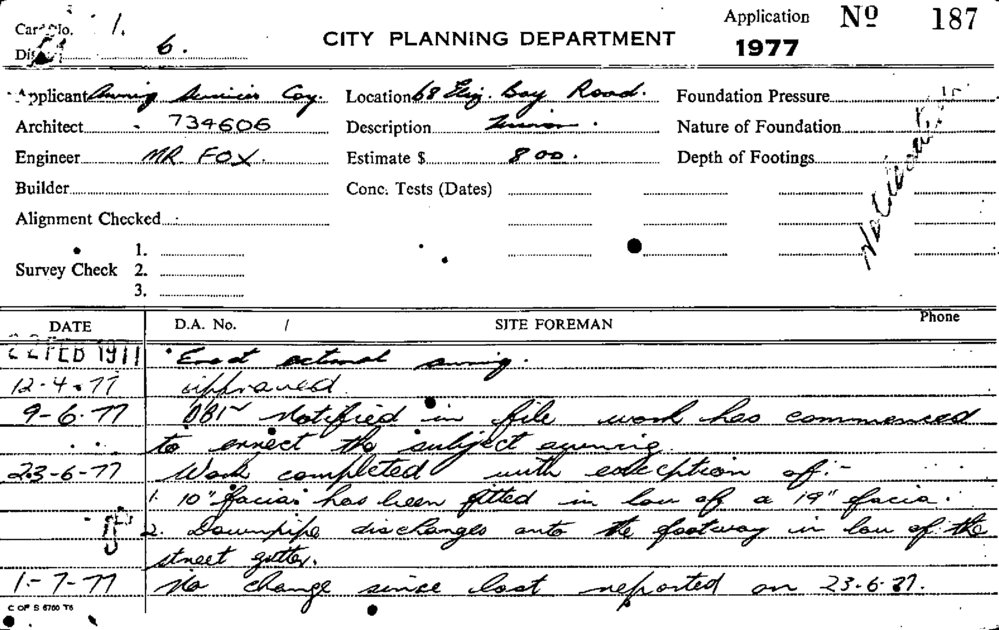 Card No. 1.
Dis 6.
CITY PLANNING DEPARTMENT
Application Nº 187
1977
Applicant Awning Services Coy.
Location 68 Eliz. Bay Road.
Foundation Pressure
Architect 734606
Description
Nature of Foundation
Engineer MR. FOX.
Estimate $ 800.
Depth of Footings
Builder
Conc. Tests (Dates)
Alignment Checked
1.
Survey Check 2.
3.
DATE D.A. No. / SITE FOREMAN Phone
22 FEB 1977 Erect awning.
12-4-77 approved
9-6-77 Notified in file work has commenced
to errect the subject awning
23-6-77 Work completed with exception of:-
1. 10" facia has been fitted in lou of a 19" facia.
2. Downpipe discharges onto the footway in lou of the
street gutter.
1-7-77 No change since last reported on 23-6-77.
C OF S 6700 T6